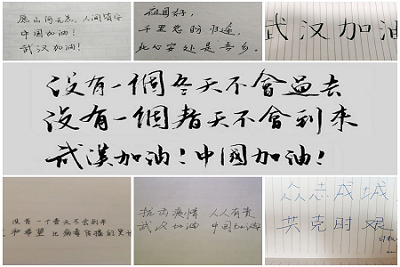 愿山河无恙，人间皆安
中国加油！
武汉加油！
千里
归途，
此心安处是吾乡。
武汉加油
没有一個冬天不會過去
没有一個春天不會到來
武漢加油！中國加油！
没有一个春天不会到来
和希望 比病毒传播的更
疫情 人人有责
武汉加油 中国加油
众志成城
共克时艰